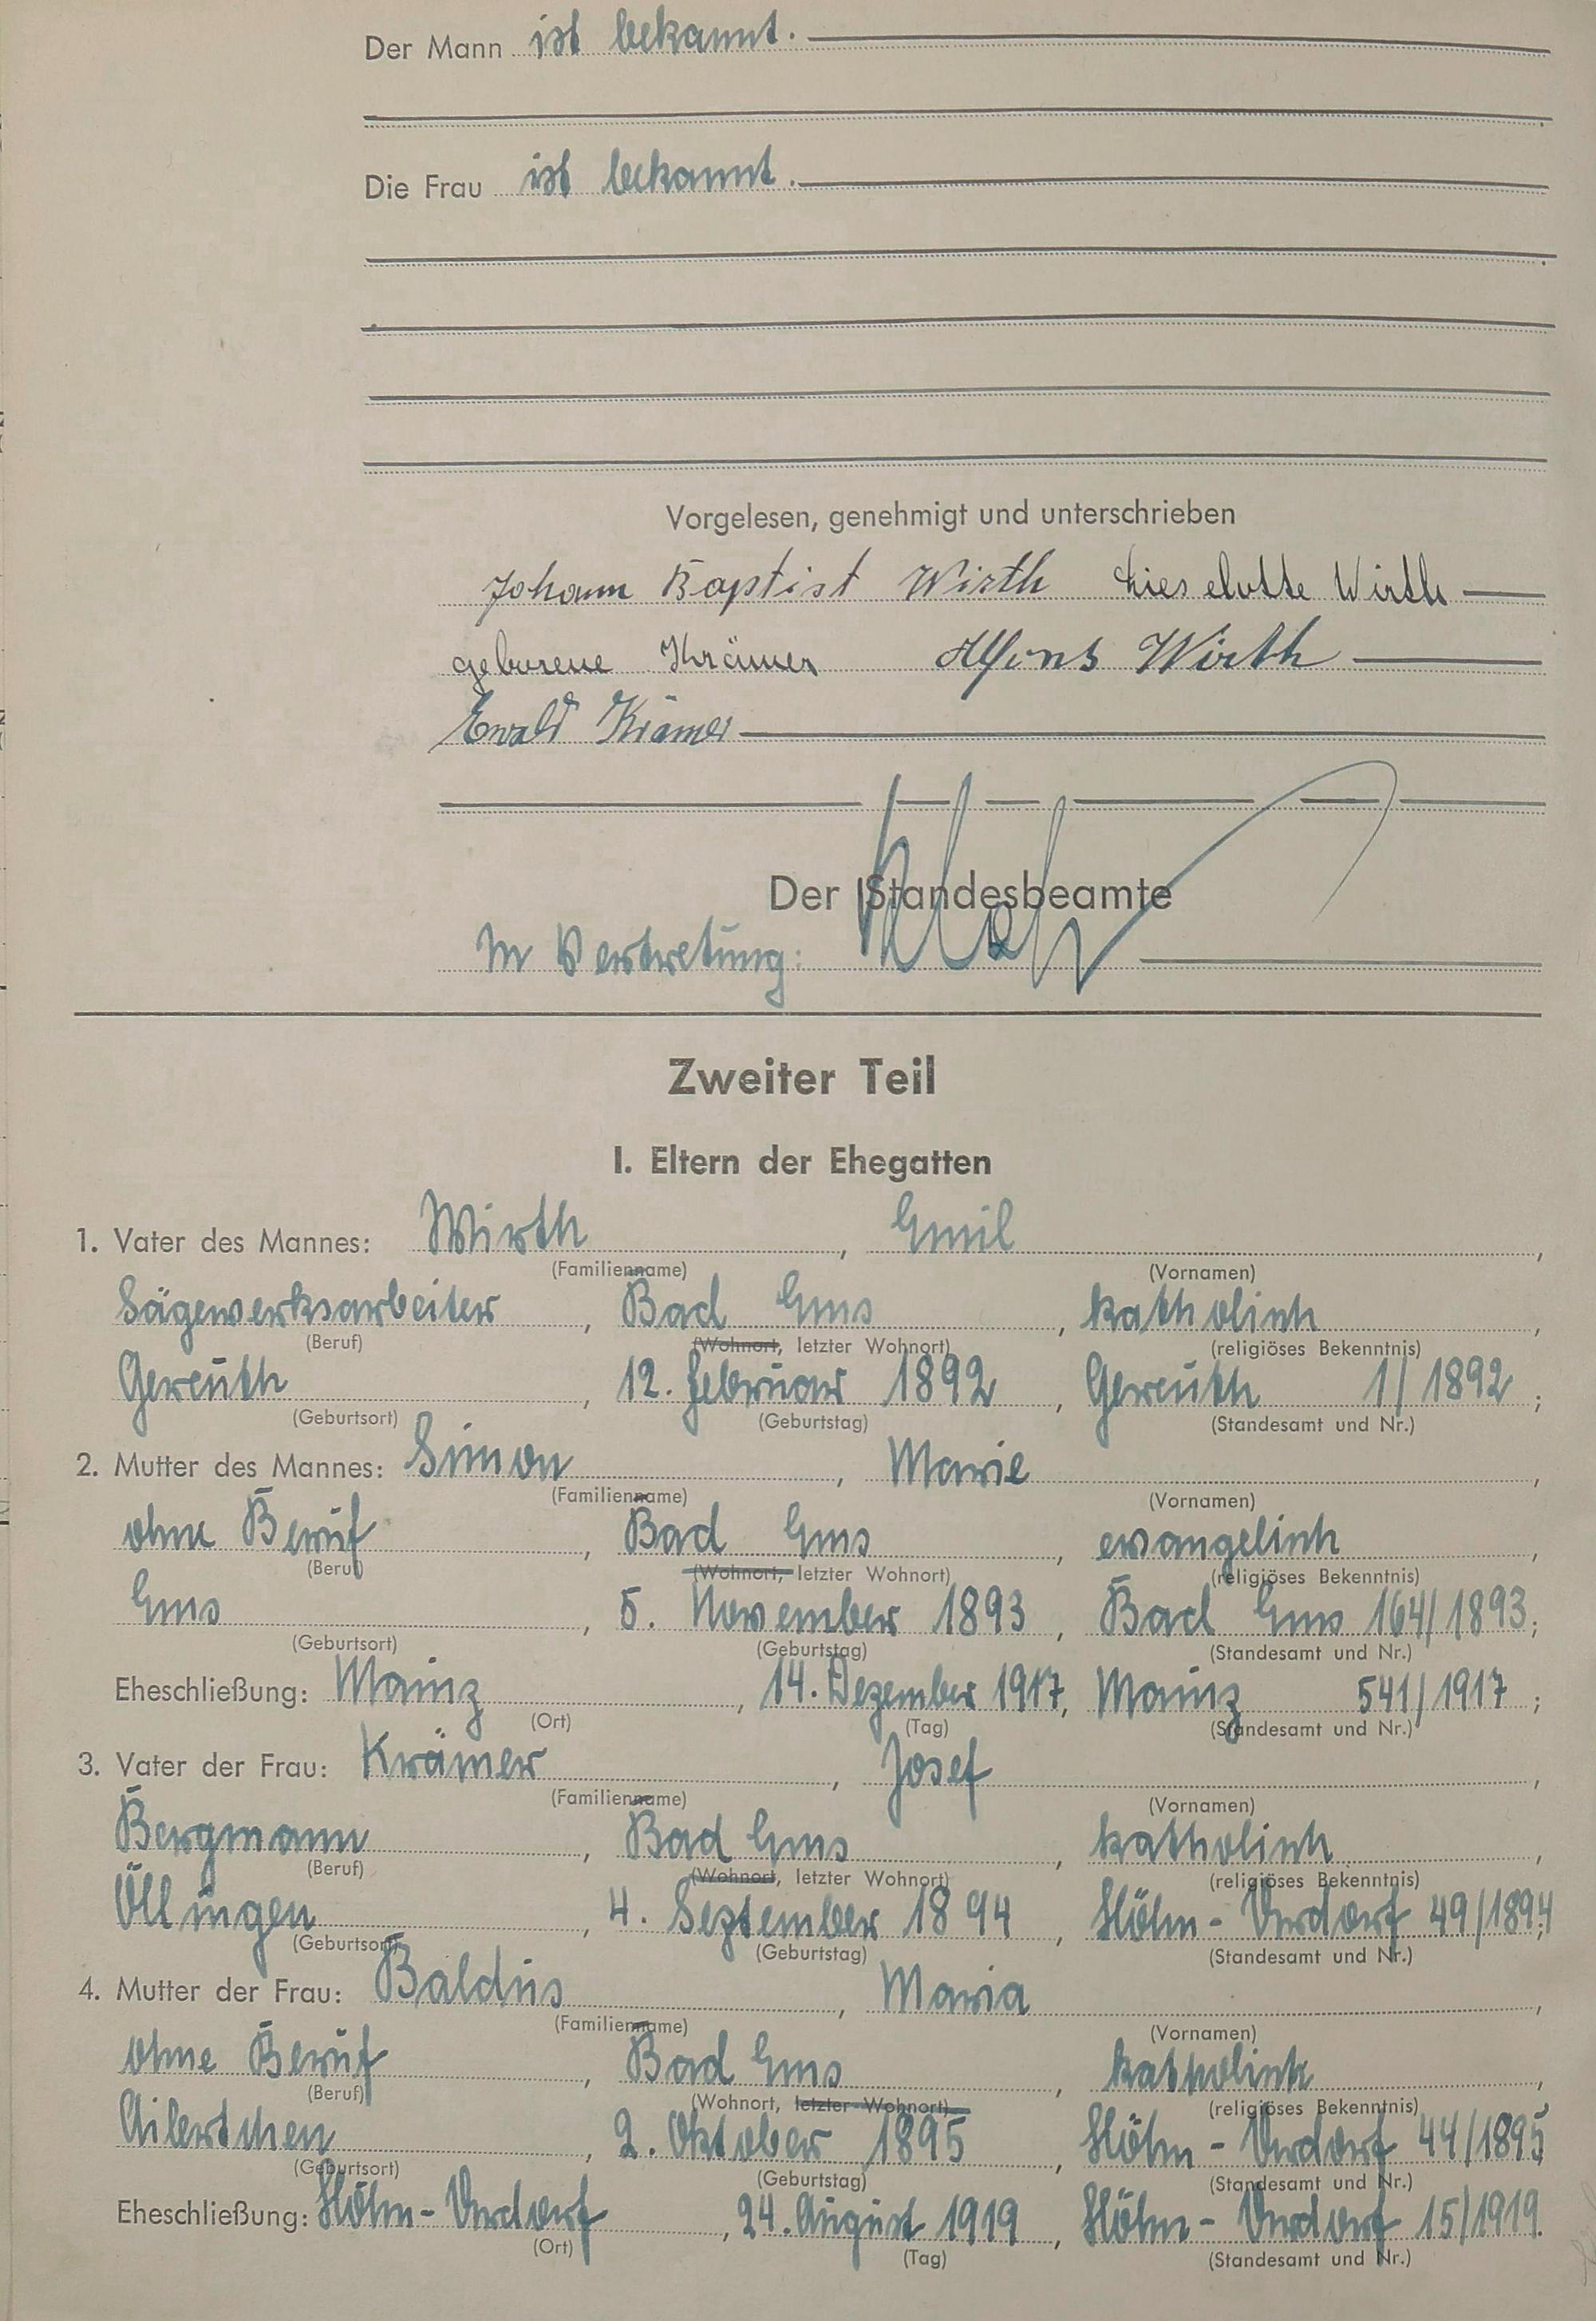 Der Mann ist bekannt.
Die Frau ist bekannt.
Vorgelesen, genehmigt und unterschrieben
Johann Baptist Wirth Lieselotte Wirth
geborene Krämer Alfons Wirth
Ewald Krämer
Der Standesbeamte
In Vertretung:
Zweiter Teil
I. Eltern der Ehegatten
1. Vater des Mannes: Wirth, Emil,
(Familienname) (Vornamen)
Sägewerksarbeiter, Bad Ems, katholisch,
(Beruf) (Wohnort, letzter Wohnort) (religiöses Bekenntnis)
Gereuth, 12. Februar 1892, Gereuth 1/1892;
(Geburtsort) (Geburtstag) (Standesamt und Nr.)
2. Mutter des Mannes: Simon, Marie,
(Familienname) (Vornamen)
ohne Beruf, Bad Ems, evangelisch,
(Beruf) (Wohnort, letzter Wohnort) (religiöses Bekenntnis)
Ems, 5. November 1893, Bad Ems 164/1893;
(Geburtsort) (Geburtstag) (Standesamt und Nr.)
Eheschließung: Mainz, 14. Dezember 1917, Mainz 541/1917;
(Ort) (Tag) (Standesamt und Nr.)
3. Vater der Frau: Krämer, Josef,
(Familienname) (Vornamen)
Bergmann, Bad Ems, katholisch,
(Beruf) (Wohnort, letzter Wohnort) (religiöses Bekenntnis)
Öllingen, 4. September 1894, Höhn-Urdorf 49/1894;
(Geburtsort) (Geburtstag) (Standesamt und Nr.)
4. Mutter der Frau: Baldus, Maria,
(Familienname) (Vornamen)
ohne Beruf, Bad Ems, katholisch,
(Beruf) (Wohnort, letzter Wohnort) (religiöses Bekenntnis)
Ailertchen, 2. Oktober 1895, Höhn-Urdorf 44/1895;
(Geburtsort) (Geburtstag) (Standesamt und Nr.)
Eheschließung: Höhn-Urdorf, 24. August 1919, Höhn-Urdorf 15/1919.
(Ort) (Tag) (Standesamt und Nr.)